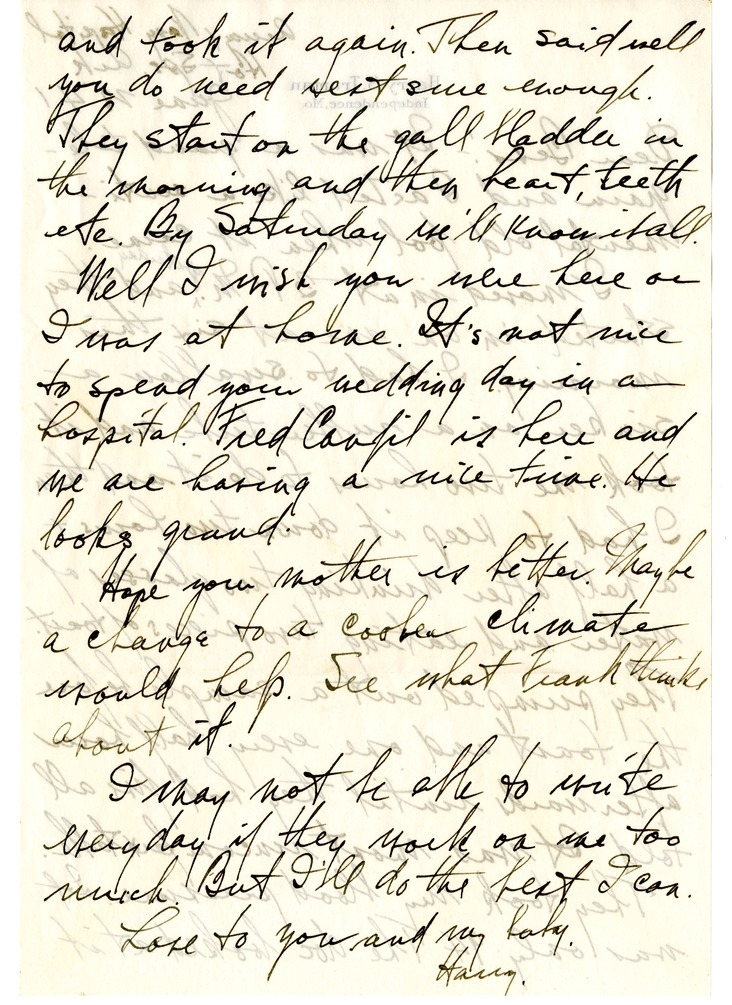 and took it again. Then said well
you do need rest sure enough.
They start on the gall bladder in
the morning and then heart, teeth
etc. By Saturday we'll know it all.
Well I wish you were here or
I was at home. It's not nice
to spend your wedding day in a
hospital. Fred Canfil is here and
we are having a nice time. He
looks grand.
Hope your mother is better. Maybe
a change to a cooler climate
would help. See what Frank thinks
about it.
I may not be able to write
everyday if they work on me too
much. But I'll do the best I can.
Love to you and my baby.
Harry.